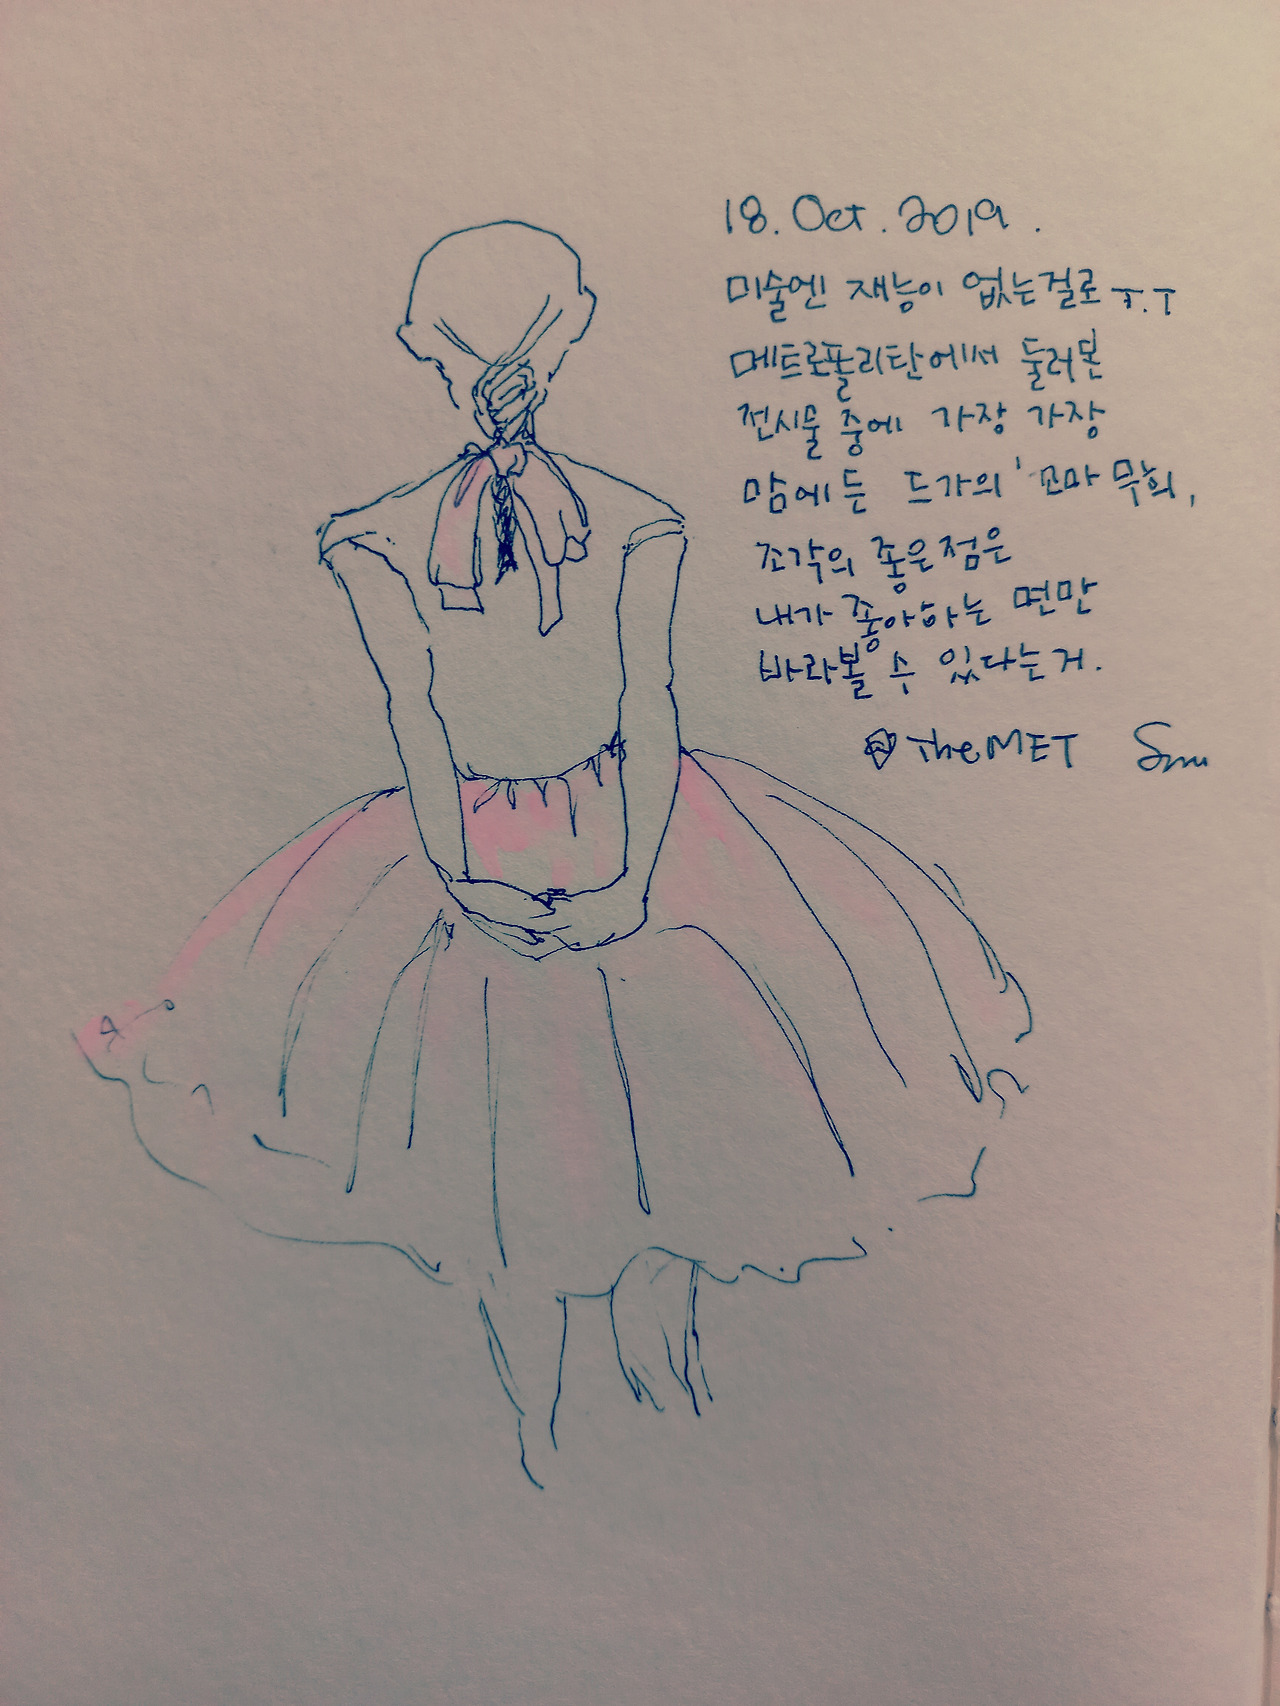 18. Oct. 2019.
미술엔 재능이 없는걸로 ㅜ.ㅜ
메트로폴리탄에서 둘러본
전시물 중에 가장 가장
맘에 든 드가의 '꼬마 무희,
조각의 좋은점은
내가 좋아하는 면만
바라볼 수 있다는거.
@TheMET